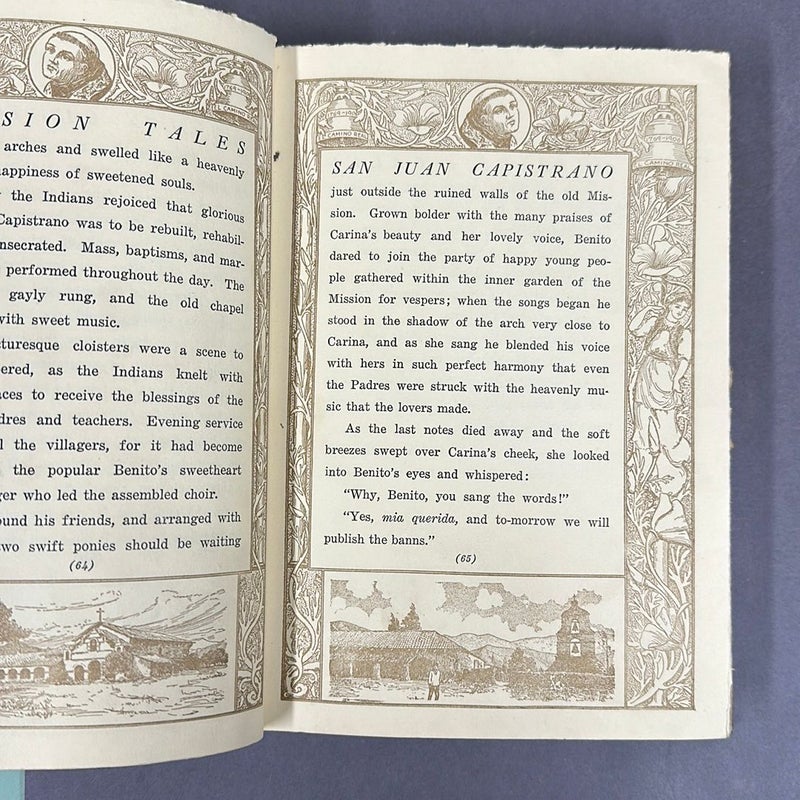 SION TALES
arches and swelled like a heavenly
happiness of sweetened souls.
the Indians rejoiced that glorious
Capistrano was to be rebuilt, rehabil-
nsecrated. Mass, baptisms, and mar-
performed throughout the day. The
gayly rung, and the old chapel
with sweet music.
cturesque cloisters were a scene to
ered, as the Indians knelt with
aces to receive the blessings of the
dres and teachers. Evening service
l the villagers, for it had become
the popular Benito's sweetheart
ger who led the assembled choir.
ound his friends, and arranged with
two swift ponies should be waiting
(64)
EL CAMINO REAL
SAN JUAN CAPISTRANO
just outside the ruined walls of the old Mis-
sion. Grown bolder with the many praises of
Carina's beauty and her lovely voice, Benito
dared to join the party of happy young peo-
ple gathered within the inner garden of the
Mission for vespers; when the songs began he
stood in the shadow of the arch very close to
Carina, and as she sang he blended his voice
with hers in such perfect harmony that even
the Padres were struck with the heavenly mu-
sic that the lovers made.
As the last notes died away and the soft
breezes swept over Carina's cheek, she looked
into Benito's eyes and whispered:
"Why, Benito, you sang the words!"
"Yes, mia querida, and to-morrow we will
publish the banns."
(65)